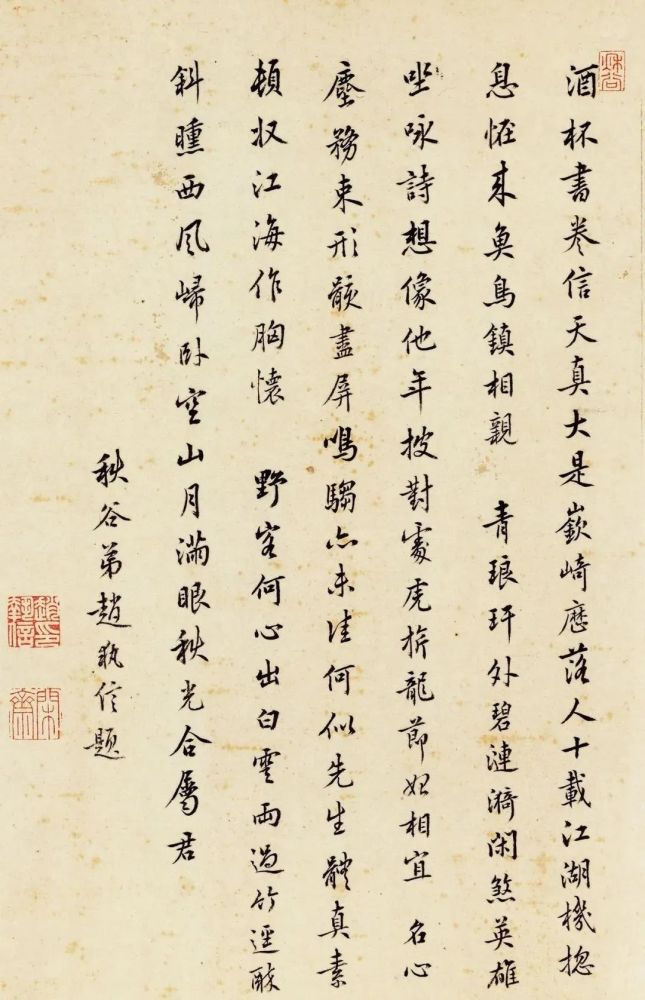 秋谷
酒杯書卷信天真大是嶔崎歷落人十載江湖機揔
息恠來魚鳥鎮相親 青琅玕外碧漣漪閑煞英雄
坐咏詩想像他年披對處虎旂龍節始相宜 名心
塵務束形骸盡屏鳴騶亦未佳何似先生體真素
頓收江海作胸懷 野客何心出白雲兩過竹逕醉
斜曛西風歸卧空山月滿眼秋光合屬君
秋谷弟趙執信題
趙執信印